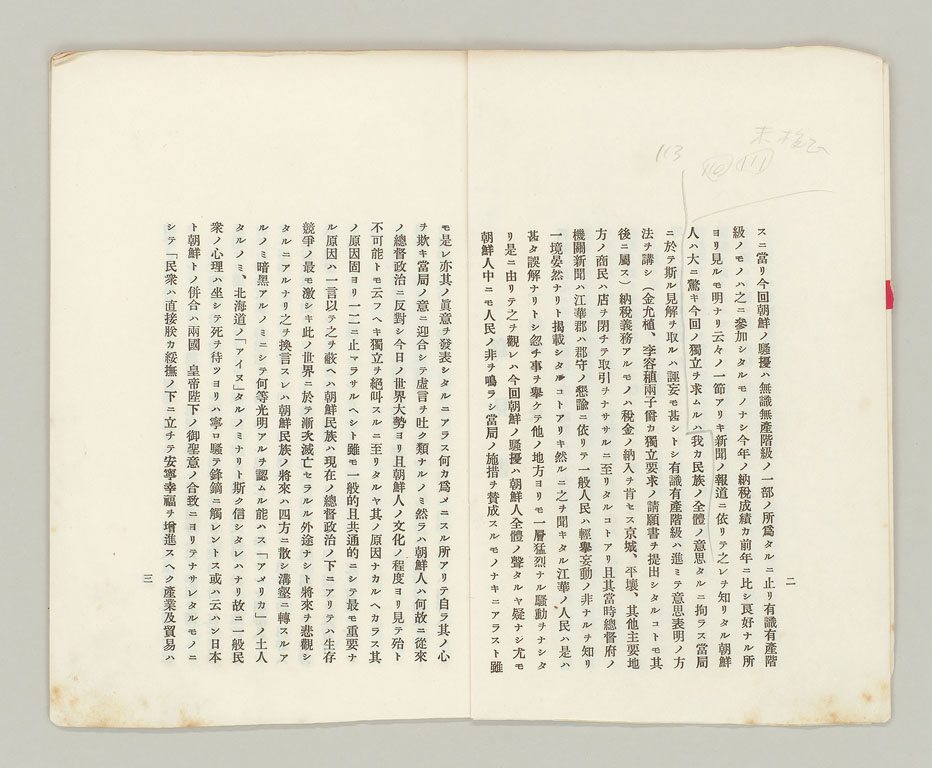 スニ當リ今回朝鮮ノ騷擾ハ無識無產階級ノ一部ノ所爲タルニ止リ有識有產階
級ノモノハ之ニ參加シタルモノナシ今年ノ納稅成績カ前年ニ比シ良好ナル所
ヨリ見ルモ明ナリ云々ノ一節アリキ新聞ノ報道ニ依リテ之レヲ知リタル朝鮮
人ハ大ニ驚キ今回ノ獨立ヲ求ムルハ我カ民族ノ全體ノ意思タルニ拘ラス當局
ニ於テ斯ル見解ヲ取ルハ誣妄モ甚シトシ有識有產階級ハ進ミテ意思表明ノ方
法ヲ講シ(金允植、李容稙兩子爵カ獨立要求ノ請願書ヲ提出シタルコトモ其
後ニ屬ス)納稅義務アルモノハ稅金ノ納入ヲ肯セス京城、平壤、其他主要地
方ノ商民ハ店ヲ閉チテ取引ヲナササルニ至リタルコトアリ且其當時總督府ノ
機關新聞ハ江華郡ハ郡守ノ懇諭ニ依リテ一般人民ハ輕擧妄動ノ非ナルヲ知リ
一境晏然ナリト揭載シタルコトアリキ然ルニ之ヲ聞キタル江華ノ人民ハ是ハ
甚タ誤解ナリトシ忽チ事ヲ擧ケテ他ノ地方ヨリモ一層猛烈ナル騷動ヲナシタ
リ是ニ由リテ之ヲ觀レハ今回朝鮮ノ騷擾ハ朝鮮人全體ノ聲タルヤ疑ナシ尤モ
朝鮮人中ニモ人民ノ非ヲ鳴ラシ當局ノ施措ヲ賛成スルモノナキニアラスト雖
二
モ是レ亦其ノ眞意ヲ發表シタルニアラス何カ爲メニスル所アリテ自ラ其ノ心
ヲ欺キ當局ノ意ニ迎合シテ虛言ヲ吐ク類ナルノミ然ラハ朝鮮人ハ何故ニ從來
ノ總督政治ニ反對シ今日ノ世界大勢ヨリ且朝鮮人ノ文化ノ程度ヨリ見テ殆ト
不可能トモ云フヘキ獨立ヲ絕叫スルニ至リタルヤ其ノ原因ナカルヘカラス其
ノ原因固ヨリ一二ニ止マラサルヘシト雖モ一般的且共通的ニシテ最モ重要ナ
ル原因ハ一言以テ之ヲ蔽ヘハ朝鮮民族ハ現在ノ總督政治ノ下ニアリテハ生存
競爭ノ最モ激シキ此ノ世界ニ於テ漸次滅亡セラルル外途ナシト將來ヲ悲觀シ
タルニアルナリ之ヲ換言スレハ朝鮮民族ノ將來ハ四方ニ散シ溝壑ニ轉スルア
ルノミ暗黑アルノミニシテ何等光明アルヲ認ムル能ハス「アメリカ」ノ土人
タルノミ、北海道ノ「アイヌ」タルノミナリト斯ク信シタレハナリ故ニ一般民
衆ノ心理ハ坐シテ死ヲ待ツヨリハ寧ロ騷テ鋒鏑ニ觸レントス或ハ云ハン日本
ト朝鮮トノ倂合ハ兩國 皇帝陛下ノ御聖意ノ合致ニヨリテナサレタルモノニ
シテ「民衆ハ直接朕カ綏撫ノ下ニ立チテ安寧幸福ヲ增進スヘク產業及貿易ハ
三
113